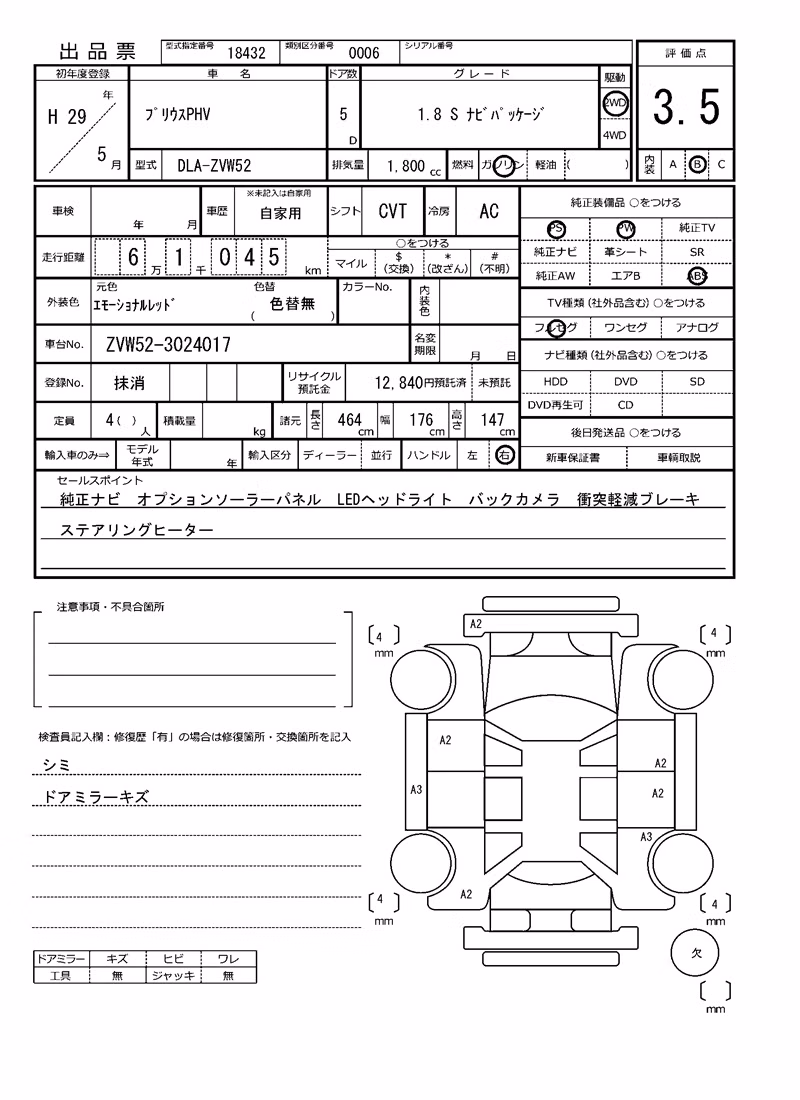 出品票 型式指定番号 18432 類別区分番号 0006 シリアル番号
評価点
3.5
内装 A B C
初年度登録 車名 ドア数 グレード 駆動
H 29 年 5 月 プリウスPHV 5 D 1.8 S ナビパッケージ 2WD
4WD
型式 DLA-ZVW52 排気量 1,800 cc 燃料 ガソリン 軽油 ( )
車検 年 月 車歴 ※未記入は自家用 自家用 シフト CVT 冷房 AC
走行距離 6 万 1 千 0 4 5 km ○をつける
マイル $ (交換) * (改ざん) # (不明)
外装色 元色 エモーショナルレッド 色替 ( 色替無 ) カラーNo. 内装色
車台No. ZVW52-3024017 名変期限 月 日
登録No. 抹消 リサイクル預託金 12,840円預託済 未預託
定員 4( ) 人 積載量 kg 諸元 長さ 464 cm 幅 176 cm 高さ 147 cm
輸入車のみ⇒ モデル年式 年 輸入区分 ディーラー 並行 ハンドル 左 右
純正装備品 ○をつける
PS PW 純正TV
純正ナビ 革シート SR
純正AW エアB ABS
TV種類(社外品含む)○をつける
フルセグ ワンセグ アナログ
ナビ種類(社外品含む)○をつける
HDD DVD SD
DVD再生可 CD
後日発送品 ○をつける
新車保証書 車輌取説
セールスポイント
純正ナビ オプションソーラーパネル LEDヘッドライト バックカメラ 衝突軽減ブレーキ
ステアリングヒーター
注意事項・不具合箇所
検査員記入欄:修復歴「有」の場合は修復箇所・交換箇所を記入
シミ
ドアミラーキズ
ドアミラー キズ ヒビ ワレ
工具 無 ジャッキ 無
A2
4 mm
4 mm
A2
A2
A3
A2
A3
A2
4 mm
4 mm
欠
mm